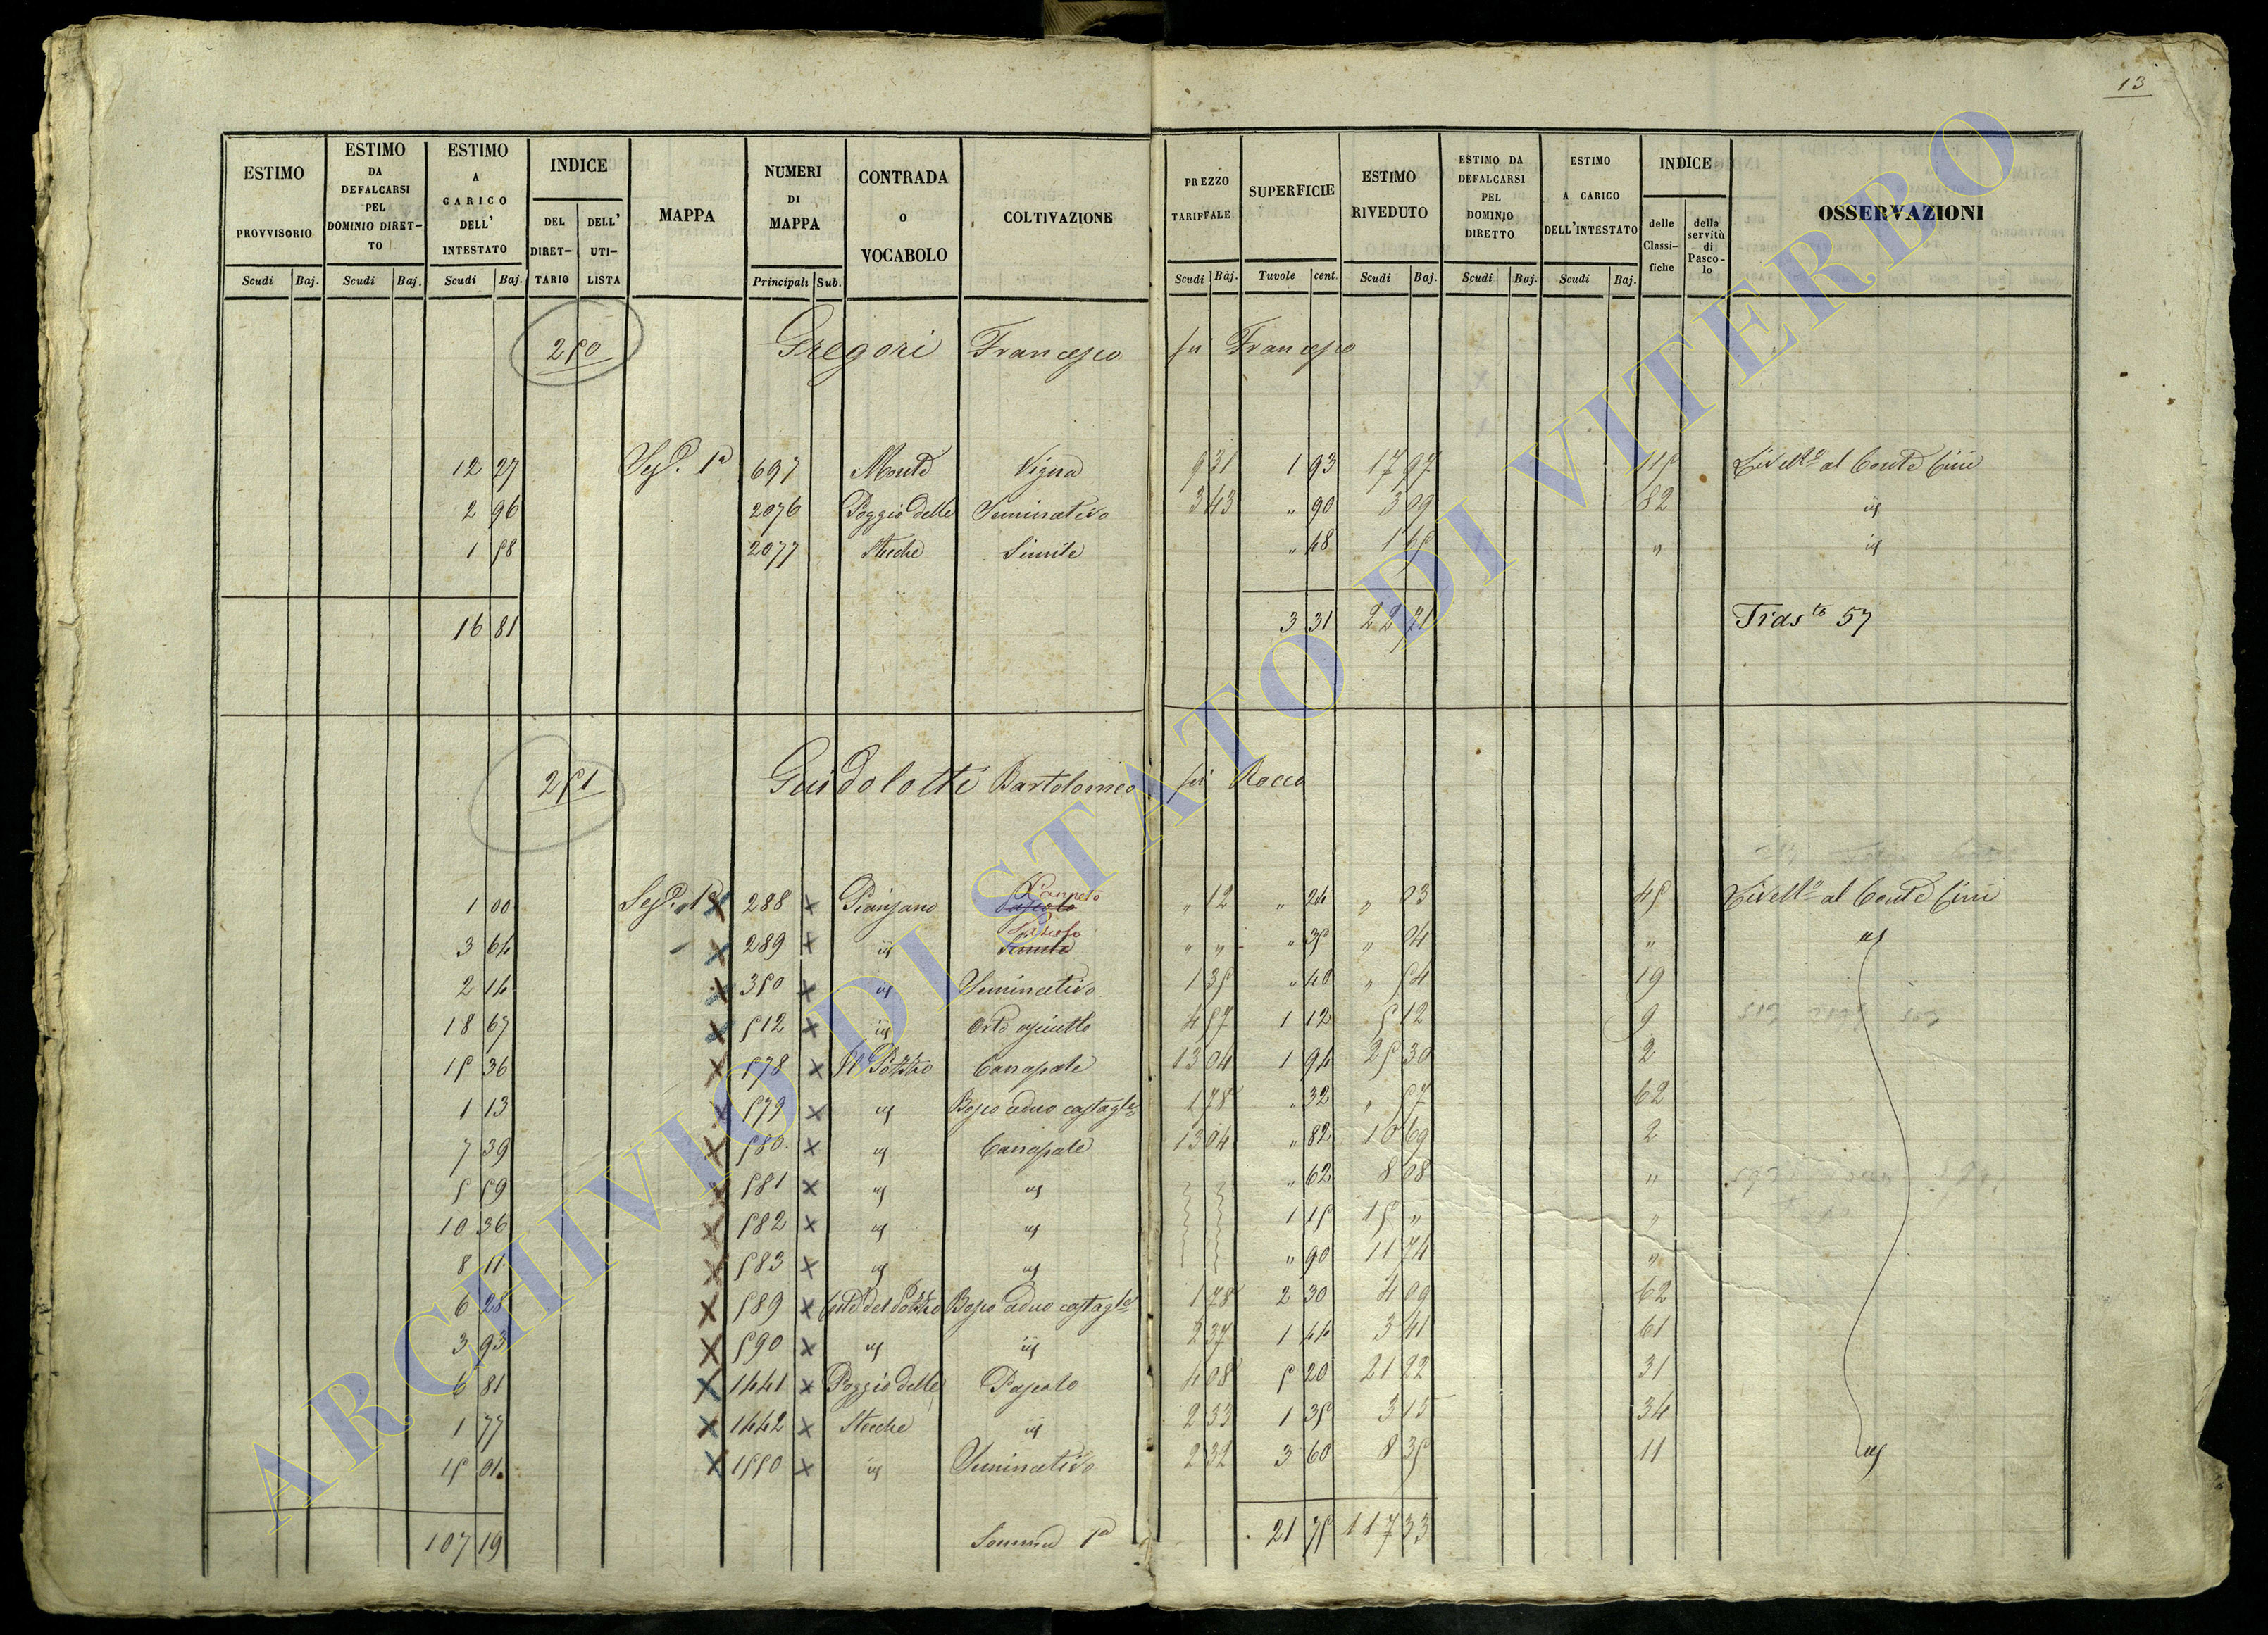 13
ESTIMO PROVVISORIO Scudi Baj.
ESTIMO DA DEFALCARSI PEL DOMINIO DIRET-TO Scudi Baj.
ESTIMO A CARICO DELL' INTESTATO Scudi Baj.
INDICE DEL DIRET-TARIO DELL' UTI-LISTA
MAPPA
NUMERI DI MAPPA Principali Sub.
CONTRADA O VOCABOLO
COLTIVAZIONE
PREZZO TARIFFALE Scudi Baj.
SUPERFICIE Tavole cent.
ESTIMO RIVEDUTO Scudi Baj.
ESTIMO DA DEFALCARSI PEL DOMINIO DIRETTO Scudi Baj.
ESTIMO A CARICO DELL'INTESTATO Scudi Baj.
INDICE delle Classi-fiche della servitù di Pasco-lo
OSSERVAZIONI
250 Gregori Francesco fu Francesco
12 27 Sez. 1a 697 Monte Vigna 9 31 1 93 17 97 115 Livello al Conte Cini
2 96 2076 Poggio delle Seminativo 3 43 " 90 3 09 82 id
1 58 2077 Stecche Simile " 48 1 65 " id
16 81 3 31 22 71 Trasto 57
251 Guidolotti Bartolomeo fu Rocco
1 00 Sez. 1a X 288 x Pianzano Pascolo Canneto " 12 " 24 " 03 45 Livello al Conte Cini
3 64 X 289 x id Simile " " " 35 " 04 " id
2 14 X 350 x id Seminativo 1 35 " 40 " 54 19
18 67 X 512 x id Orto asciutto 4 57 1 12 5 12 9
15 36 X 578 x Il Pozzo Canapale 13 04 1 94 25 30 2
1 13 X 579 x id Bosco ceduo castagle 1 78 " 32 " 57 62
7 39 X 580 x id Canapale 13 04 " 82 10 69 2
5 59 X 581 x id id " 62 8 08 "
10 36 X 582 x id id 1 15 15 " "
8 11 X 583 x id id " 90 11 74 "
6 28 X 589 x Coste del Pozzo Bosco ceduo castagle 1 78 2 30 4 09 62
3 93 X 590 x id id 2 37 1 44 3 41 61
6 81 X 1441 x Poggio delle Pascolo 4 08 5 20 21 22 31
1 77 X 1442 x Stecche id 2 33 1 35 3 15 34
15 01 X 1550 x id Seminativo 2 32 3 60 8 35 11 id
107 19 Somma 1a 21 75 117 33
ARCHIVIO DI STATO DI VITERBO